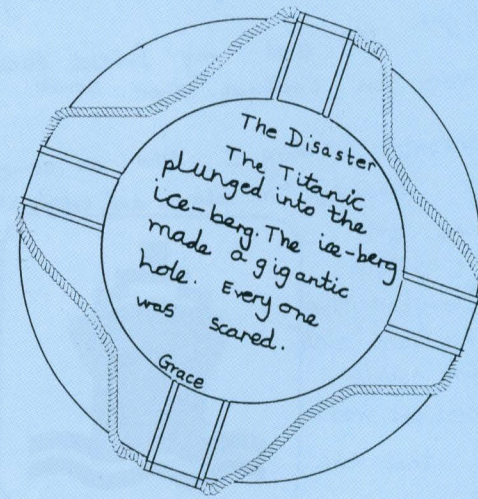 The Disaster
The Titanic
plunged into the
ice-berg. The ice-berg
made a gigantic
hole. Every one
was scared.
Grace